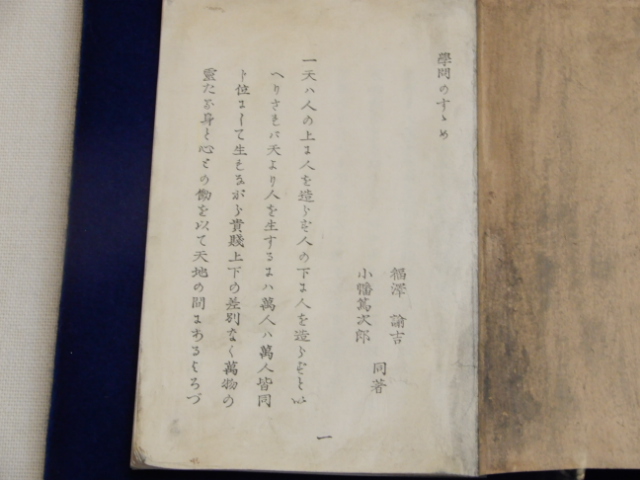 學問のすゝめ
福澤 諭吉
小幡篤次郎
同著
一天ハ人の上に人を造らず人の下に人を造らずとい
へりされバ天より人を生ずるにハ萬人ハ萬人皆同
ト位にして生れながら貴賤上下の差別なく萬物の
霊たる身と心との働を以て天地の間にあるよろづ
一